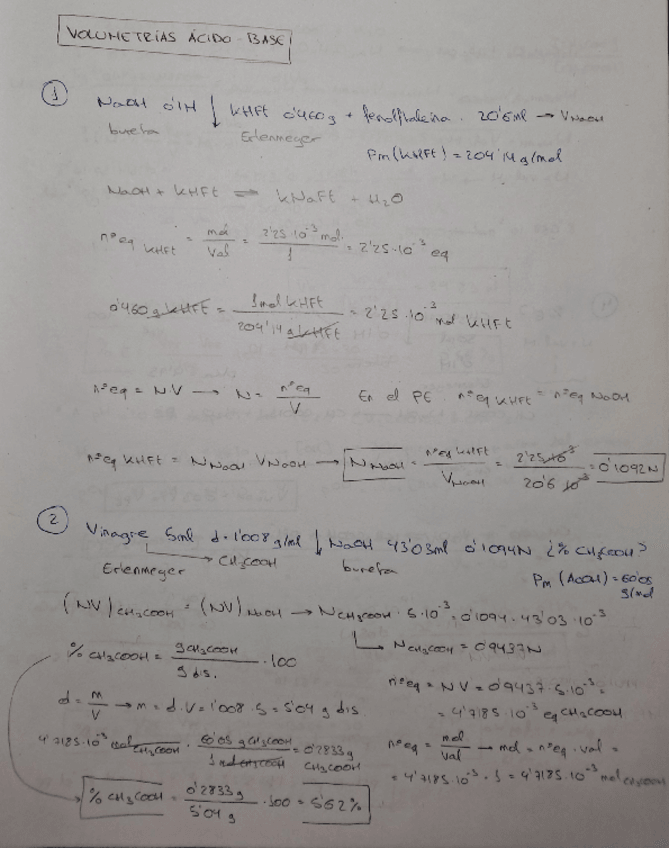 VOLUMETRÍAS ÁCIDO-BASE
① NaOH 0'1M ↓ KHFt 0'460g + fenolftaleína. 20'6ml → VNaOH
bureta Erlenmeyer Pm(KHFt) = 204'14 g/mol
NaOH + KHFt ⇌ KNaFt + H2O
nºeq KHFt = mol/Val = 2'25·10^-3 mol/1 = 2'25·10^-3 eq
0'460 g KHFt = 1mol KHFt/204'14 g KHFt = 2'25·10^-3 mol KHFt
nºeq = NV → N = nºeq/V En el PE nºeq KHFt = nºeq NaOH
nºeq KHFt = NNaOH VNaOH → NNaOH = nºeq KHFt/VNaOH = 2'25·10^-3/20'6·10^-3 = 0'1092N
② Vinagre 5ml d = 1'008 g/ml ↓ NaOH 43'03ml 0'1094N ¿% CH3COOH?
→ CH3COOH
Erlenmeyer bureta Pm (AcOH) = 60'05 g/mol
(NV)CH3COOH = (NV)NaOH → NCH3COOH · 5·10^-3 = 0'1094 · 43'03·10^-3
→ NCH3COOH = 0'9437N
% CH3COOH = g CH3COOH/g dis. · 100
nºeq = NV = 0'9437·5·10^-3 =
= 4'7185·10^-3 eq CH3COOH
d = m/V → m = d·V = 1'008·5 = 5'04 g dis.
4'7185·10^-3 mol CH3COOH · 60'05 g CH3COOH/1 mol CH3COOH = 0'2833g CH3COOH
nºeq = mol/val → mol = nºeq · val =
= 4'7185·10^-3 · 1 = 4'7185·10^-3 mol CH3COOH
% CH3COOH = 0'2833g/5'04 g · 100 = 5'62%